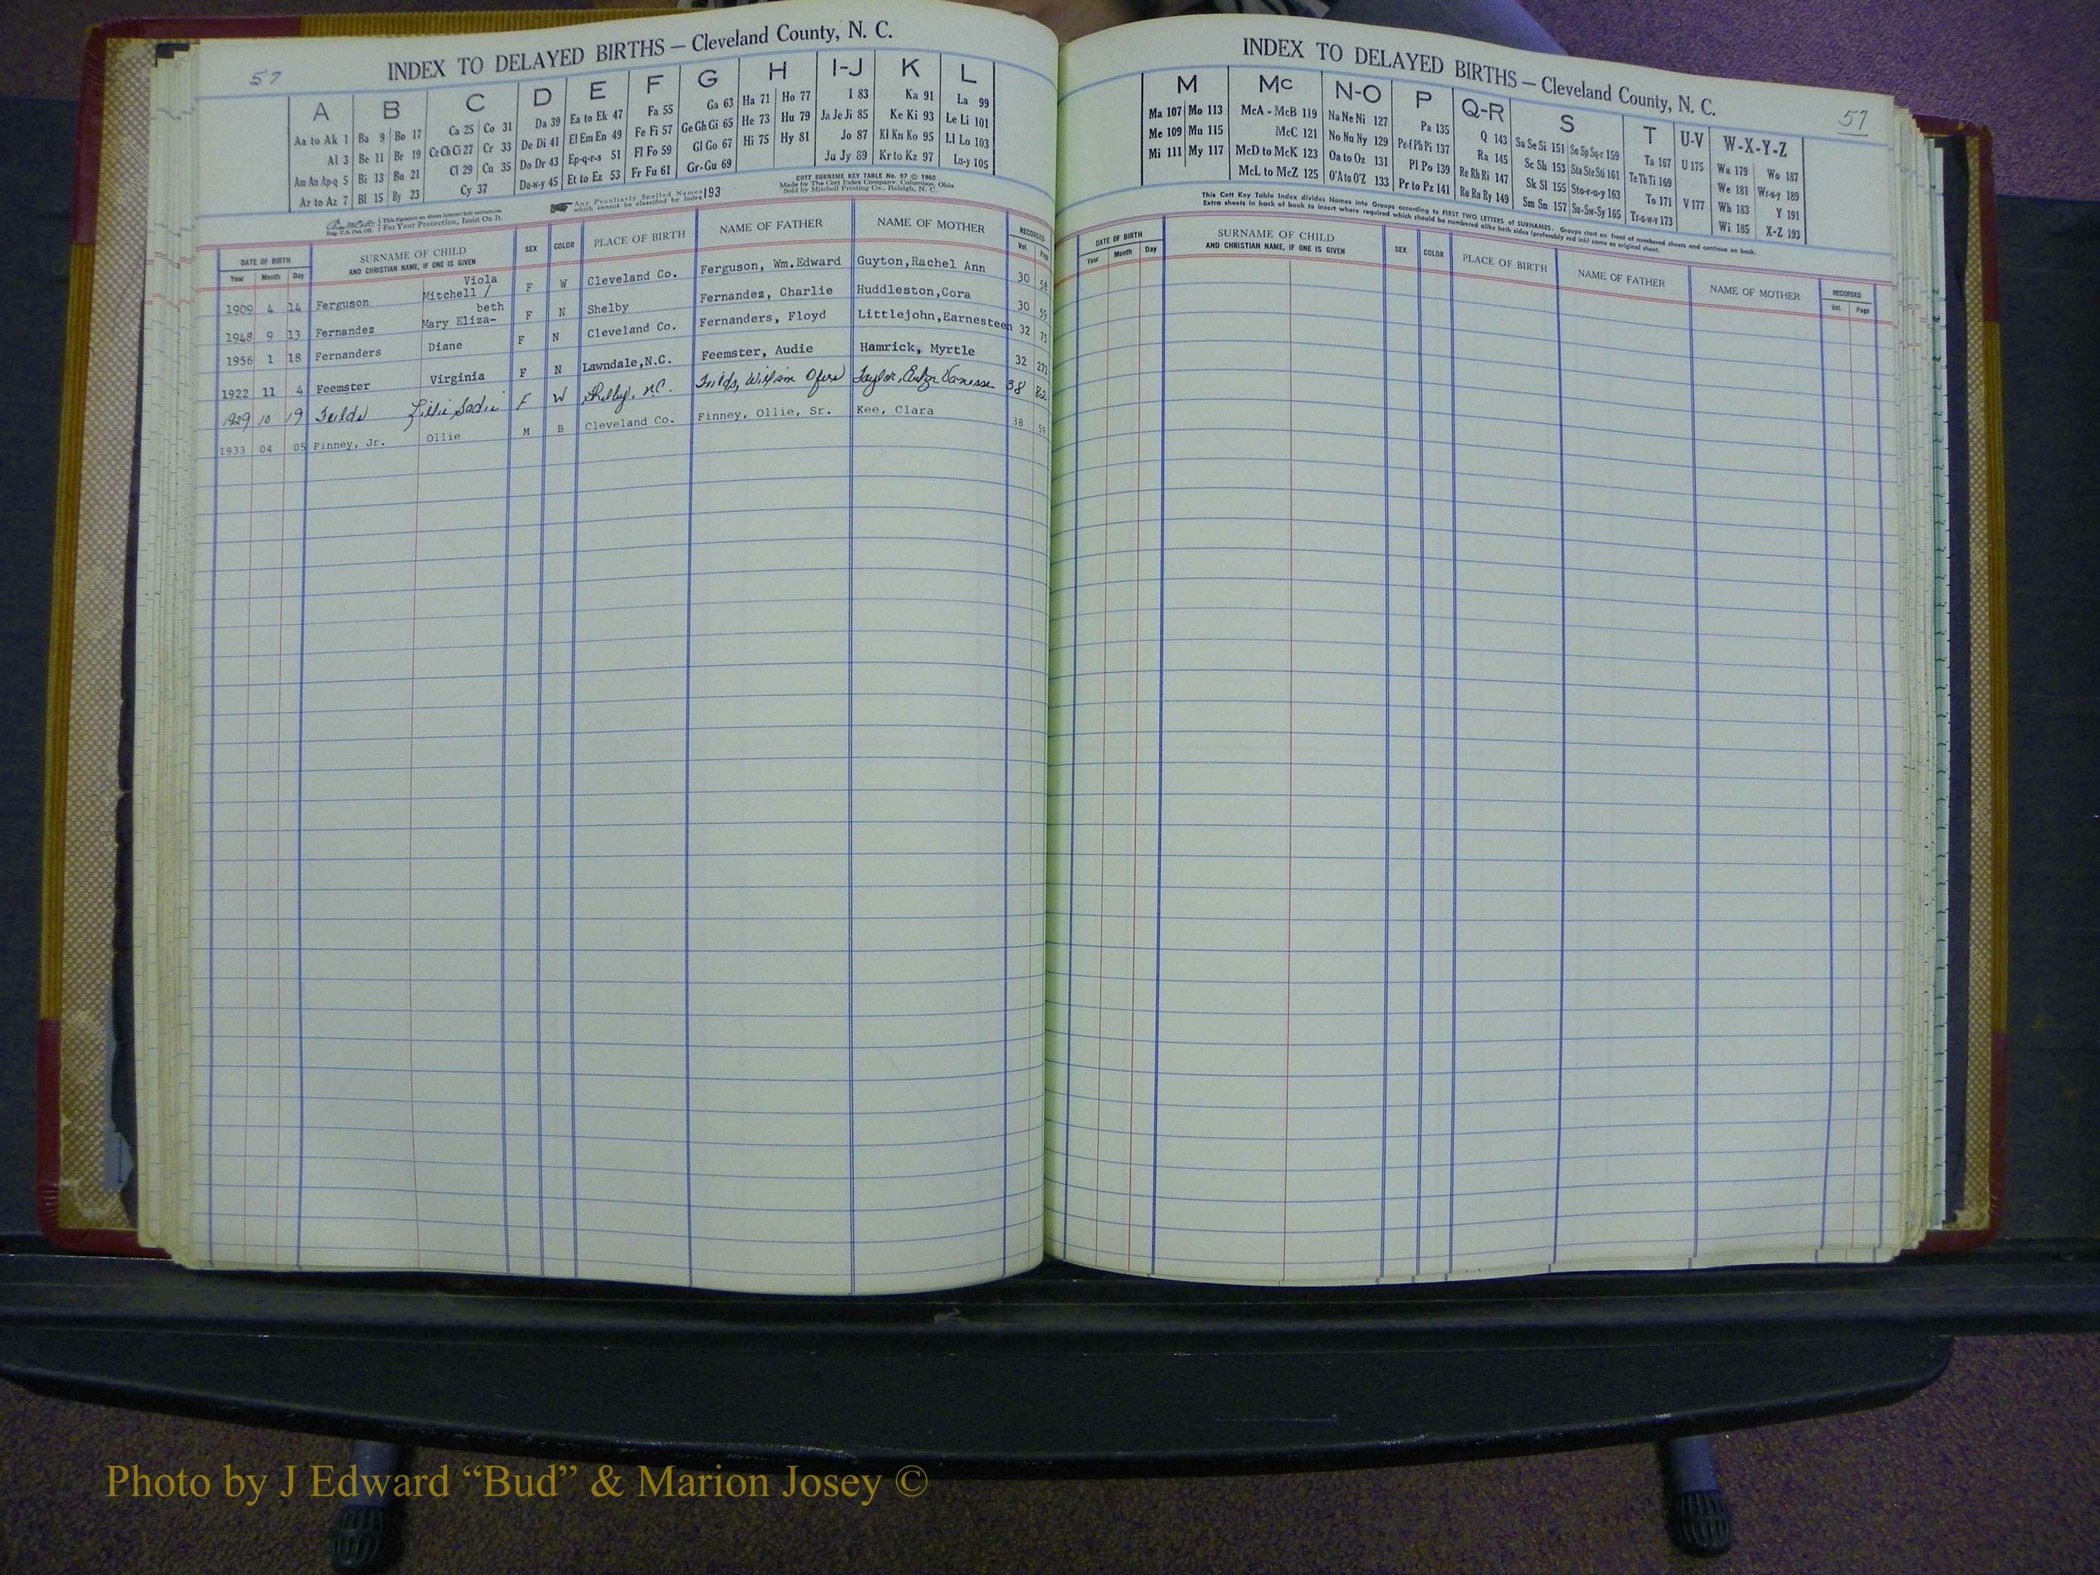 57
INDEX TO DELAYED BIRTHS — Cleveland County, N. C.
A B C D E F G H I-J K L
Aa to Ak 1 Ba 9 Bo 17 Ca 25 Co 31 Da 39 Ea to Ek 47 Fa 55 Ga 63 Ha 71 Ho 77 I 83 Ka 91 La 99
Al 3 Be 11 Br 19 Ce Ch Ci 27 Cr 33 De Di 41 El Em En 49 Fe Fi 57 Ge Gh Gi 65 He 73 Hu 79 Ja Je Ji 85 Ke Ki 93 Le Li 101
Am An Ap-q 5 Bi 13 Bu 21 Cl 29 Cu 35 Do Dr 43 Ep-q-r-s 51 Fl Fo 59 Gl Go 67 Hi 75 Hy 81 Jo 87 Kl Kn Ko 95 Ll Lo 103
Ar to Az 7 Bl 15 By 23 Cy 37 Du-w-y 45 Et to Ez 53 Fr Fu 61 Gr-Gu 69 Ju Jy 89 Kr to Kz 97 Lu-y 105
Reg. U.S. Pat. Off. This Signature on sheets insures their correctness. For Your Protection, Insist On It.
Any Peculiarly Spelled Names which cannot be classified by Index 193
COTT SURNAME KEY TABLE No. 97 © 1960
Made by The Cott Index Company, Columbus, Ohio
Sold by Mitchell Printing Co., Raleigh, N. C.
DATE OF BIRTH SURNAME OF CHILD SEX COLOR PLACE OF BIRTH NAME OF FATHER NAME OF MOTHER RECORDED
Year Month Day AND CHRISTIAN NAME, IF ONE IS GIVEN Vol. Page
Viola
1909 4 14 Ferguson Mitchell / F W Cleveland Co. Ferguson, Wm.Edward Guyton,Rachel Ann 30 58
beth
1948 9 13 Fernandez Mary Eliza- F N Shelby Fernandez, Charlie Huddleston,Cora 30 59
1956 1 18 Fernanders Diane F N Cleveland Co. Fernanders, Floyd Littlejohn,Earnesteen 32 75
1922 11 4 Feemster Virginia F N Lawndale,N.C. Feemster, Audie Hamrick, Myrtle 32 272
1929 10 19 Fields Lillie Sadie F W Shelby, N.C. Fields, William Taylor, 38 82
1933 04 05 Finney, Jr. Ollie M B Cleveland Co. Finney, Ollie, Sr. Kee, Clara 38 59
INDEX TO DELAYED BIRTHS — Cleveland County, N. C.
57
M Mc N-O P Q-R S T U-V W-X-Y-Z
Ma 107 Mo 113 McA - McB 119 Na Ne Ni 127 Pa 135 Q 143 Sa Se Si 151 So Sp Sq-r 159 Ta 167 U 175 Wa 179 Wo 187
Me 109 Mu 115 McC 121 No Nu Ny 129 Pe-f Ph Pi 137 Ra 145 Sc Sh 153 Sta Ste Sti 161 Te Th Ti 169 We 181 Wr-u-y 189
Mi 111 My 117 McD to McK 123 Oa to Oz 131 Pl Po 139 Re Rh Ri 147 Sk Sl 155 Sto-r-u-y 163 To 171 V 177 Wh 183 Y 191
McL to McZ 125 O'A to O'Z 133 Pr to Pz 141 Ro Ru Ry 149 Sm Sn 157 Su-Sw-Sy 165 Tr-u-w-y 173 Wi 185 X-Z 193
This Cott Key Table Index divides Names into Groups according to FIRST TWO LETTERS of SURNAMES. Groups start on front of numbered sheets and continue on back.
Extra sheets in back of book to insert where required which should be numbered alike both sides (preferably red ink) same as original sheet.
DATE OF BIRTH SURNAME OF CHILD SEX COLOR PLACE OF BIRTH NAME OF FATHER NAME OF MOTHER RECORDED
Year Month Day AND CHRISTIAN NAME, IF ONE IS GIVEN Vol. Page
Photo by J Edward “Bud” & Marion Josey ©